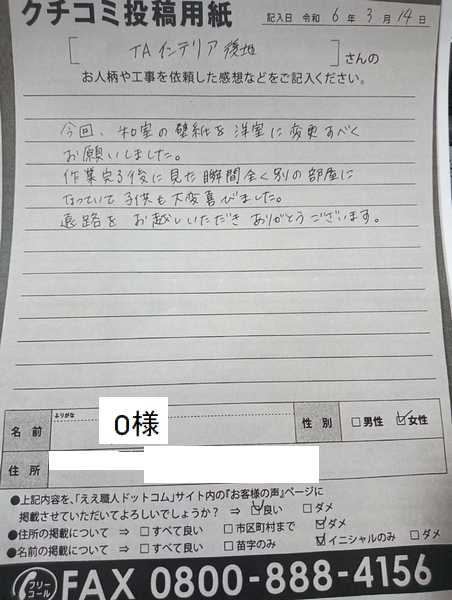 クチコミ投稿用紙
記入日 令和 6 年 3 月 14 日
[ TAインテリア 後地 ] さんの
お人柄や工事を依頼した感想などをご記入ください。
今回、和室の壁紙を洋室に変更すべく
お願いしました。
作業完了後に見た瞬間全く別の部屋に
なっていて子供も大変喜びました。
遠路をお越しいただきありがとうございます。
ふりがな
名前 O様 性別 □男性 ☑女性
住所
●上記内容を、「ええ職人ドットコム」サイト内の『お客様の声』ページに
掲載させていただいてよろしいでしょうか? ⇒ ☑良い □ダメ
●住所の掲載について ⇒ □すべて良い □市区町村まで ☑ダメ
●名前の掲載について ⇒ □すべて良い □苗字のみ ☑イニシャルのみ □ダメ
フリーコール FAX 0800-888-4156